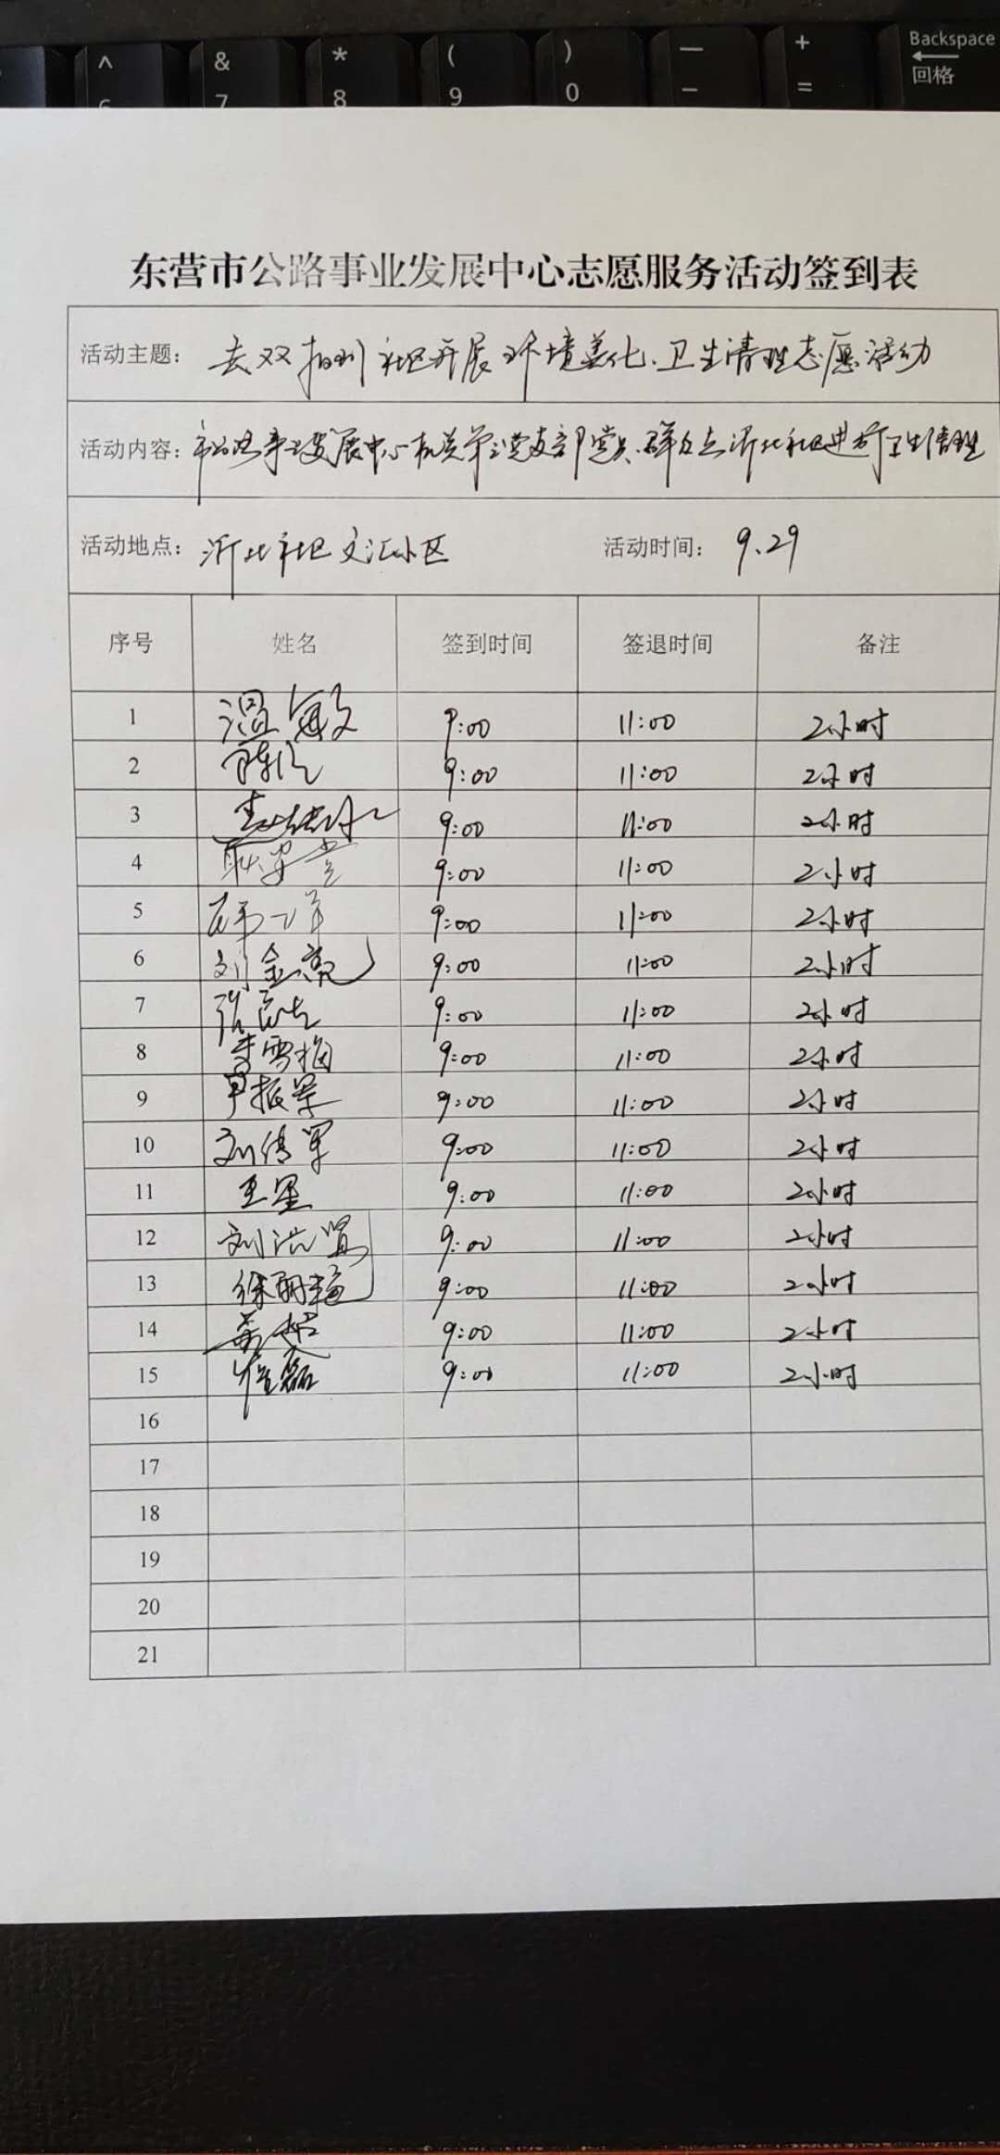 ^ & * ( ) — + Backspace
6 7 8 9 0 - = 回格
东营市公路事业发展中心志愿服务活动签到表
活动主题： 去双报到社区开展环境美化、卫生清理志愿活动
活动内容： 市公路事业发展中心机关第二党支部党员、群众去沂北社区进行卫生清理
活动地点： 沂北社区文汇小区 活动时间： 9.29
序号 姓名 签到时间 签退时间 备注
1 温敏 9:00 11:00 2小时
2 9:00 11:00 2小时
3 9:00 11:00 2小时
4 9:00 11:00 2小时
5 9:00 11:00 2小时
6 刘金亮 9:00 11:00 2小时
7 9:00 11:00 2小时
8 李雪梅 9:00 11:00 2小时
9 尹振军 9:00 11:00 2小时
10 刘传军 9:00 11:00 2小时
11 王星 9:00 11:00 2小时
12 9:00 11:00 2小时
13 徐丽艳 9:00 11:00 2小时
14 9:00 11:00 2小时
15 崔磊 9:00 11:00 2小时
16
17
18
19
20
21